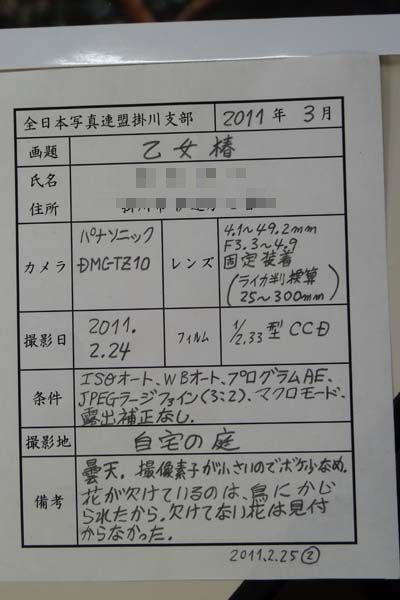 全日本写真連盟掛川支部 2011年 3月
画題 乙女椿
氏名
住所
カメラ パナソニック
DMC-TZ10
レンズ 4.1~49.2mm
F3.3~4.9
固定装着
(ライカ判換算
25~300mm)
撮影日 2011.
2.24
フィルム 1/2.33型 CCD
条件 ISOオート、WBオート、プログラムAE、
JPEGラージファイン(3:2)、マクロモード、
露出補正なし.
撮影地 自宅の庭
備考 曇天。撮像素子が小さいのでボケ少なめ。
花が欠けているのは、鳥にかじ
られたから。欠けてない花は見付
からなかった.
2011.2.25 ②